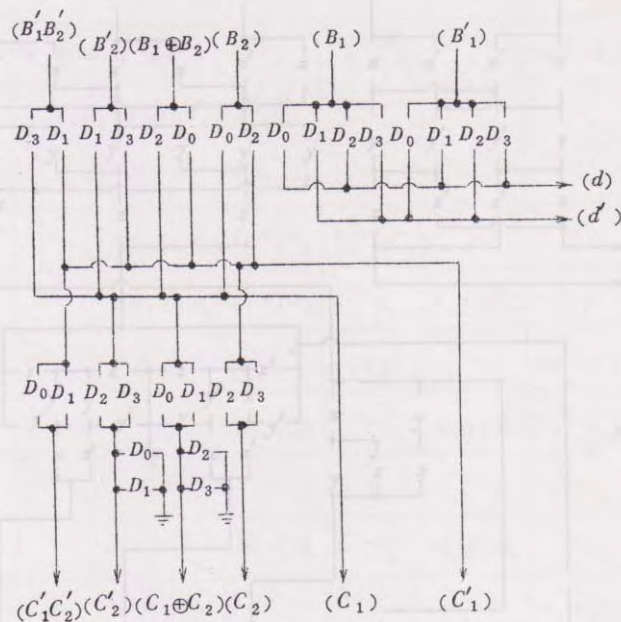 (B′₁B′₂) (B′₂) (B₁⊕B₂) (B₂) (B₁) (B′₁)
D₃ D₁ D₁ D₃ D₂ D₀ D₀ D₂ D₀ D₁ D₂ D₃ D₀ D₁ D₂ D₃
(d)
(d′)
D₀ D₁ D₂ D₃ D₀ D₁ D₂ D₃
D₀ D₂
D₁ D₃
(C′₁C′₂) (C′₂) (C₁⊕C₂) (C₂) (C₁) (C′₁)